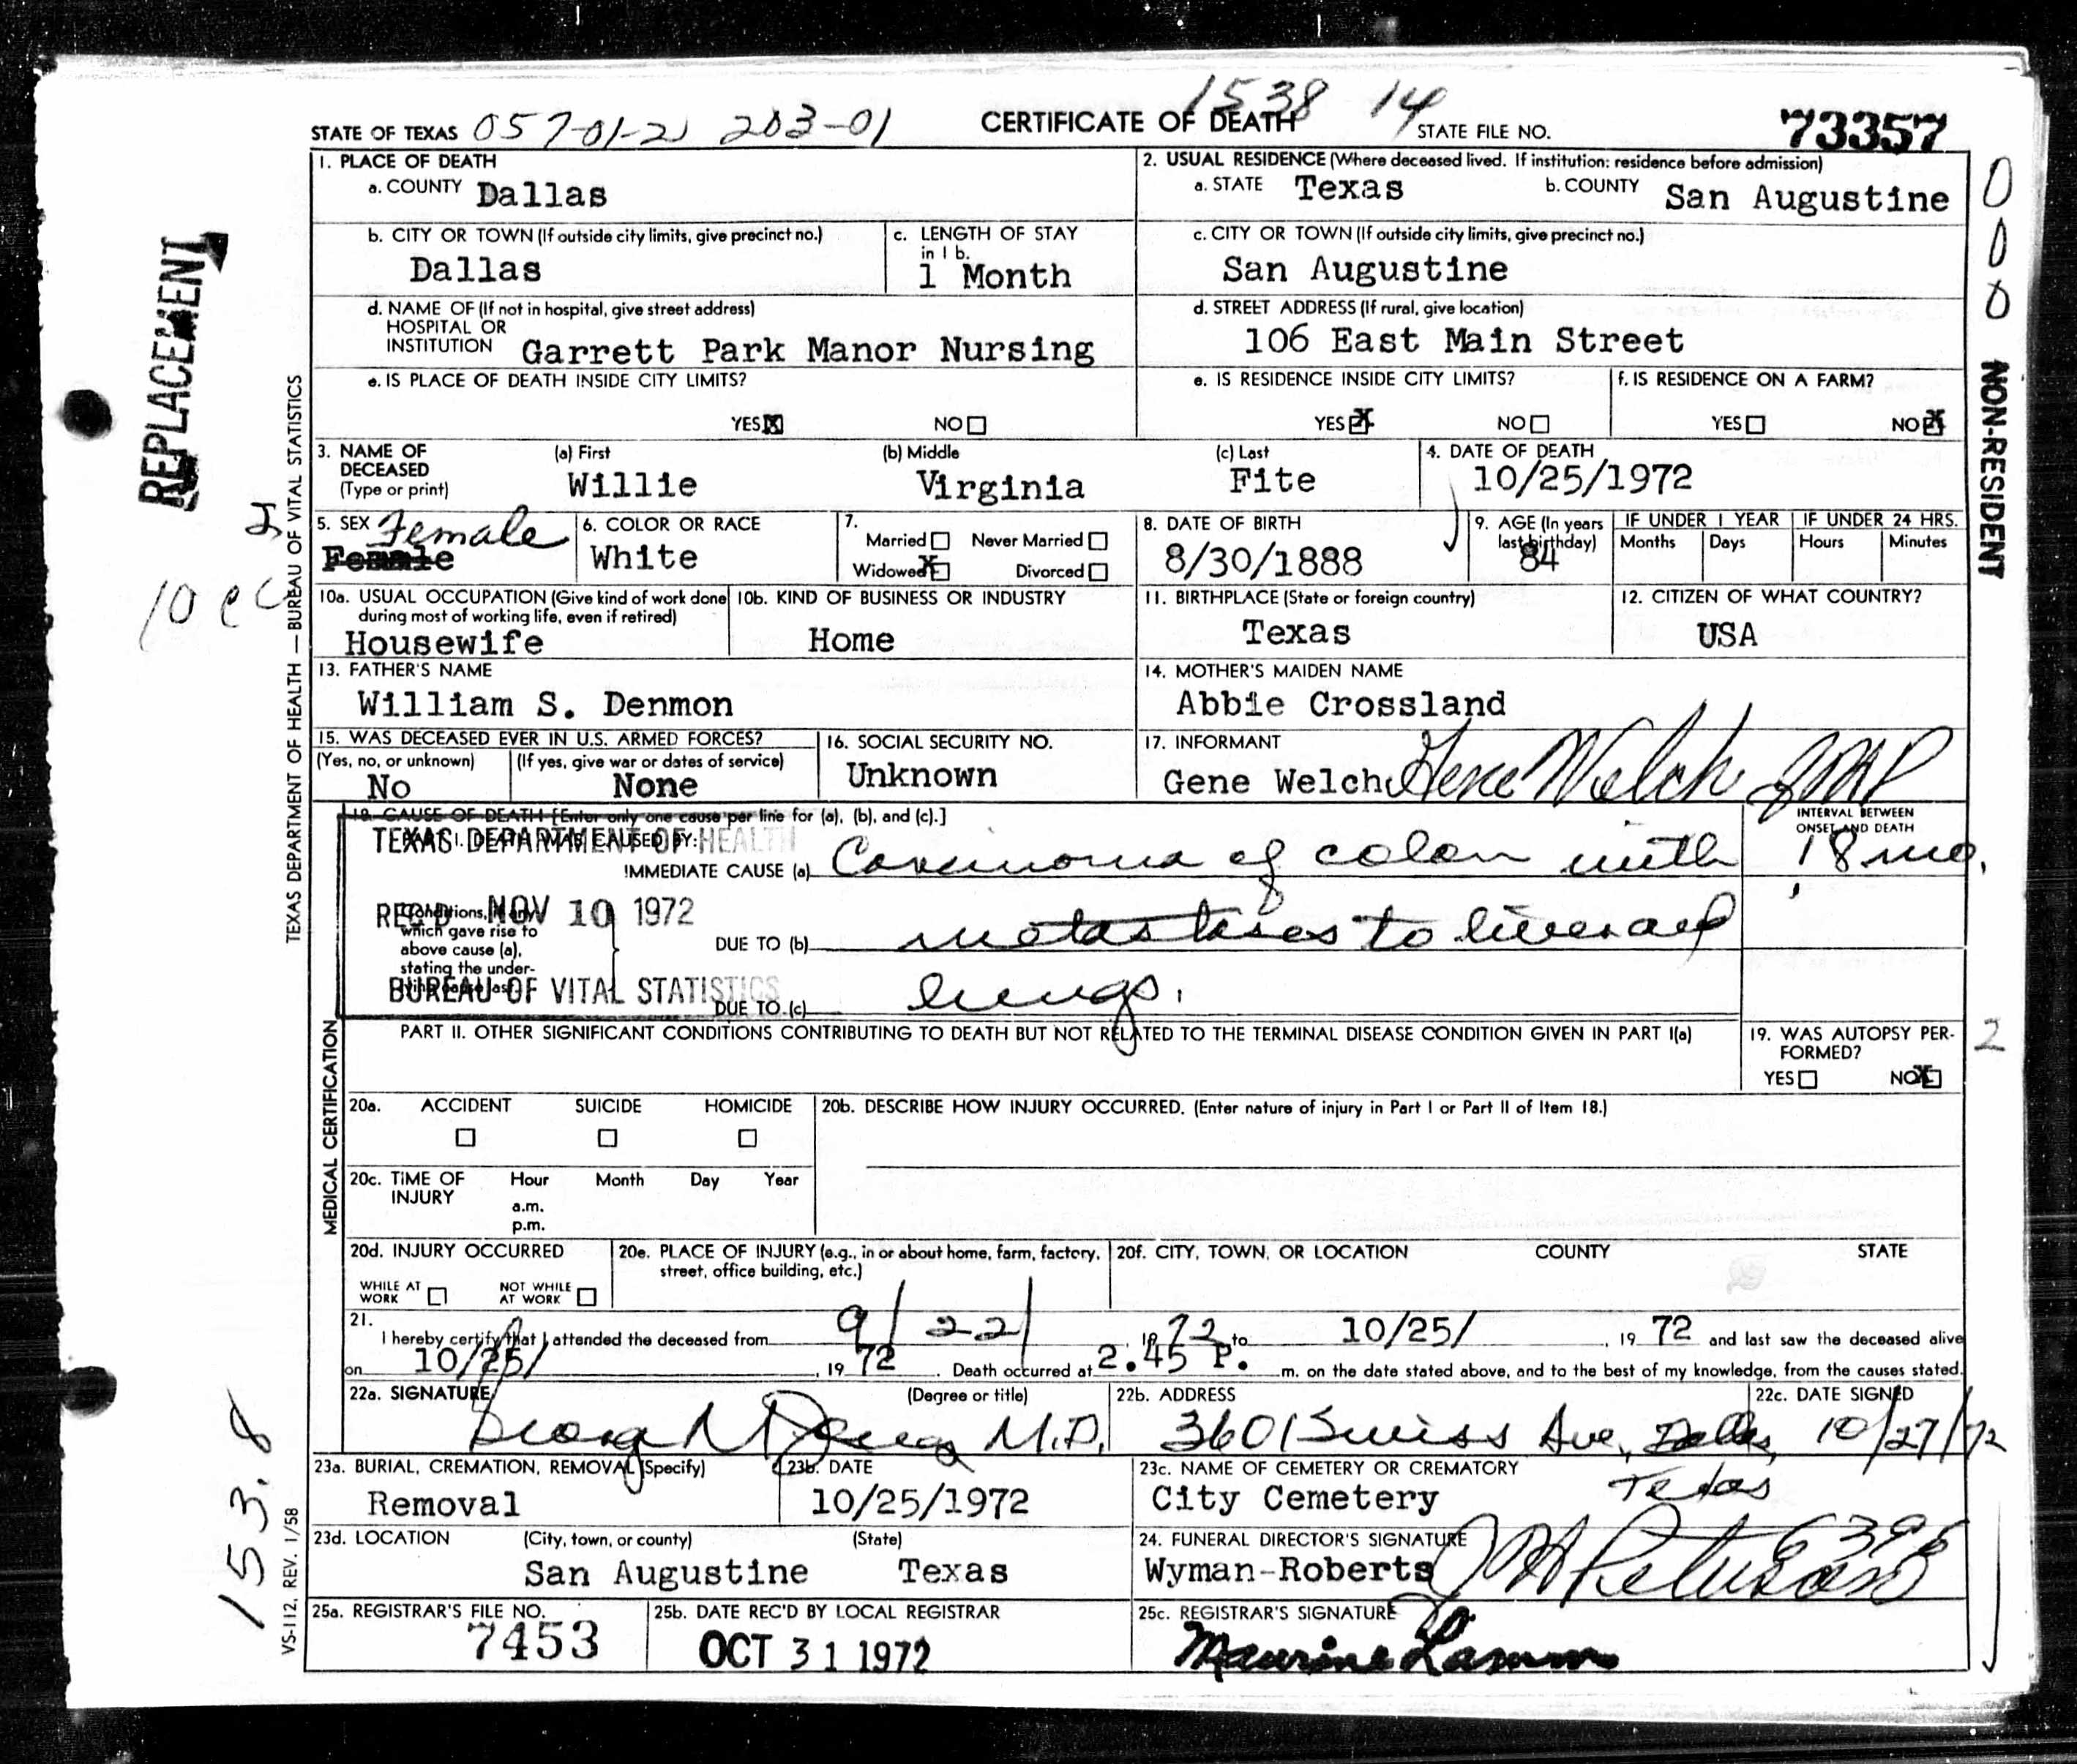 1538 14
STATE OF TEXAS 057-01-2) 203-01 CERTIFICATE OF DEATH STATE FILE NO. 73357
1. PLACE OF DEATH
a. COUNTY Dallas
2. USUAL RESIDENCE (Where deceased lived. If institution: residence before admission)
a. STATE Texas b. COUNTY San Augustine
b. CITY OR TOWN (If outside city limits, give precinct no.)
Dallas
c. LENGTH OF STAY
in 1 b.
1 Month
c. CITY OR TOWN (If outside city limits, give precinct no.)
San Augustine
d. NAME OF (If not in hospital, give street address)
HOSPITAL OR
INSTITUTION Garrett Park Manor Nursing
d. STREET ADDRESS (If rural, give location)
106 East Main Street
e. IS PLACE OF DEATH INSIDE CITY LIMITS?
YES X NO
e. IS RESIDENCE INSIDE CITY LIMITS?
YES X NO
f. IS RESIDENCE ON A FARM?
YES NO X
3. NAME OF
DECEASED
(Type or print)
(a) First
Willie
(b) Middle
Virginia
(c) Last
Fite
4. DATE OF DEATH
10/25/1972
5. SEX Female
Female
6. COLOR OR RACE
White
7.
Married Never Married
Widowed X Divorced
8. DATE OF BIRTH
8/30/1888
9. AGE (In years
last birthday)
84
IF UNDER 1 YEAR
Months Days
IF UNDER 24 HRS.
Hours Minutes
10a. USUAL OCCUPATION (Give kind of work done
during most of working life, even if retired)
Housewife
10b. KIND OF BUSINESS OR INDUSTRY
Home
11. BIRTHPLACE (State or foreign country)
Texas
12. CITIZEN OF WHAT COUNTRY?
USA
13. FATHER'S NAME
William S. Denmon
14. MOTHER'S MAIDEN NAME
Abbie Crossland
15. WAS DECEASED EVER IN U.S. ARMED FORCES?
(Yes, no, or unknown)
No
(If yes, give war or dates of service)
None
16. SOCIAL SECURITY NO.
Unknown
17. INFORMANT
Gene Welch Gene Welch
18. CAUSE OF DEATH [Enter only one cause per line for (a), (b), and (c).]
INTERVAL BETWEEN
ONSET AND DEATH
TEXAS DEPARTMENT OF HEALTH
REC'D NOV 10 1972
BUREAU OF VITAL STATISTICS
IMMEDIATE CAUSE (a) Carcinoma of colon with 18 mo.
Conditions, if any
which gave rise to
above cause (a),
stating the under-
lying cause last.
DUE TO (b) metastases to liver and
DUE TO (c) lungs.
PART II. OTHER SIGNIFICANT CONDITIONS CONTRIBUTING TO DEATH BUT NOT RELATED TO THE TERMINAL DISEASE CONDITION GIVEN IN PART I(a)
19. WAS AUTOPSY PER-
FORMED?
YES NO X
20a. ACCIDENT SUICIDE HOMICIDE
20b. DESCRIBE HOW INJURY OCCURRED. (Enter nature of injury in Part I or Part II of Item 18.)
20c. TIME OF
INJURY
Hour Month Day Year
a.m.
p.m.
20d. INJURY OCCURRED
WHILE AT
WORK
NOT WHILE
AT WORK
20e. PLACE OF INJURY (e.g., in or about home, farm, factory,
street, office building, etc.)
20f. CITY, TOWN, OR LOCATION COUNTY STATE
21.
I hereby certify that I attended the deceased from 9/22/, 1972 to 10/25/, 19 72 and last saw the deceased alive
on 10/25/, 19 72. Death occurred at 2.45 P. m. on the date stated above, and to the best of my knowledge, from the causes stated.
22a. SIGNATURE (Degree or title)
M.D.
22b. ADDRESS
3601 Swiss Ave, Dallas,
Texas
22c. DATE SIGNED
10/27/72
23a. BURIAL, CREMATION, REMOVAL (Specify)
Removal
23b. DATE
10/25/1972
23c. NAME OF CEMETERY OR CREMATORY
City Cemetery
23d. LOCATION (City, town, or county) (State)
San Augustine Texas
24. FUNERAL DIRECTOR'S SIGNATURE
Wyman-Roberts
25a. REGISTRAR'S FILE NO.
7453
25b. DATE REC'D BY LOCAL REGISTRAR
OCT 31 1972
25c. REGISTRAR'S SIGNATURE
Maurine Lamm
REPLACEMENT
TEXAS DEPARTMENT OF HEALTH — BUREAU OF VITAL STATISTICS
MEDICAL CERTIFICATION
153.8
VS-112, REV. 1/58
000
NON-RESIDENT
2